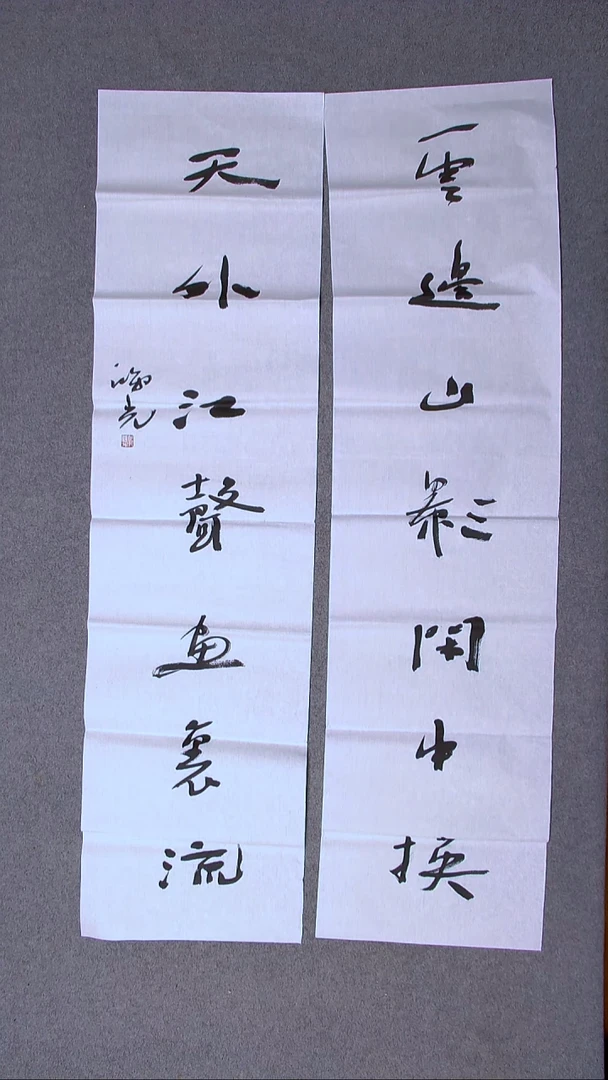 雲邊山影閑中換
天外江聲画裏流